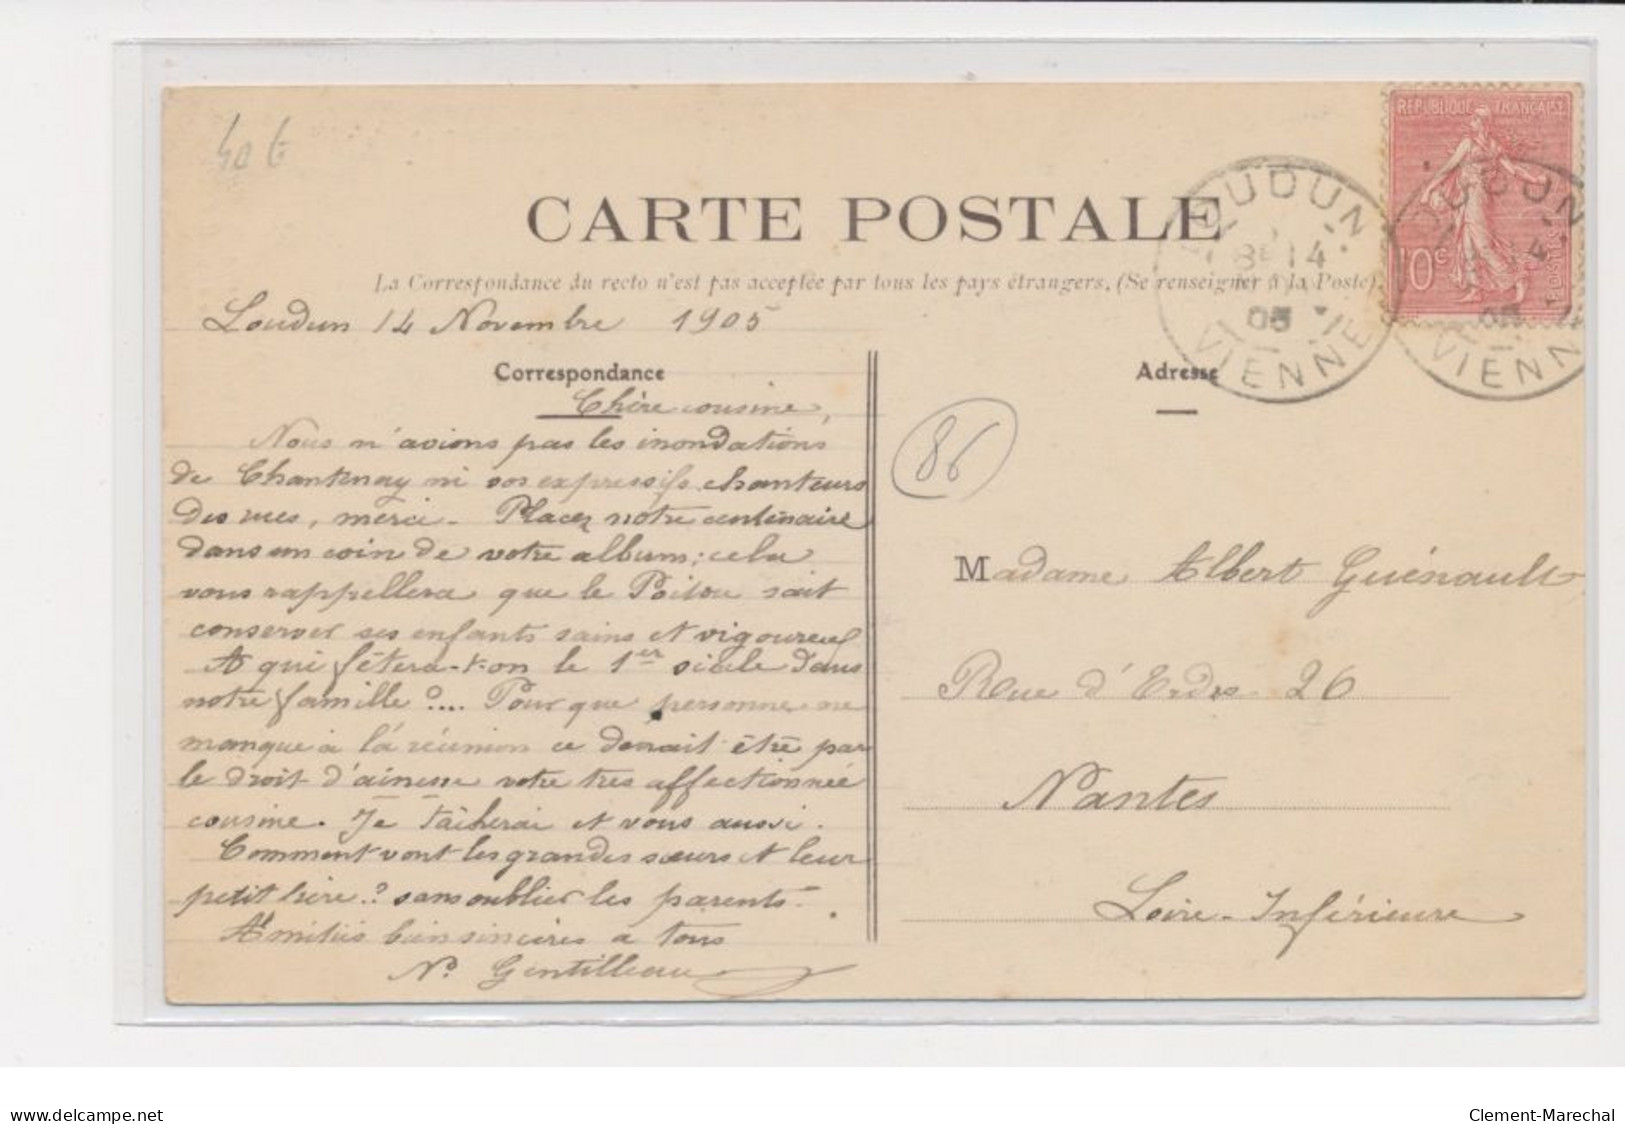 40 €
REPUBLIQUE FRANÇAISE
10c
POSTES
LOUDUN
8E 14
05
VIENNE
OUDUN
14
VIENN
CARTE POSTALE
La Correspondance du recto n'est pas acceptée par tous les pays étrangers. (Se renseigner à la Poste).
Loudun 14 Novembre 1905
Correspondance
Chère cousine,
Nous n'avions pas les inondations
de Chantenay ni vos expressifs chanteurs
des rues, merci - Placez notre centenaire
dans un coin de votre album; cela
vous rappellera que le Poitou sait
conserver ses enfants sains et vigoureux
A qui fêtera-t-on le 1er siècle dans
notre famille ?.... Pour que personne ne
manque à la réunion ce devrait être par
le droit d'ainesse votre très affectionnée
cousine. Je tâcherai et vous aussi.
Comment vont les grandes sœurs et leur
petit frère ? sans oublier les parents -
Amitiés bien sincères a tous
N. Gentilleau
Adresse
86
Madame Albert Guénault
Rue d'Erdre 26
Nantes
Loire-Inférieure
www.delcampe.net
Clement-Marechal